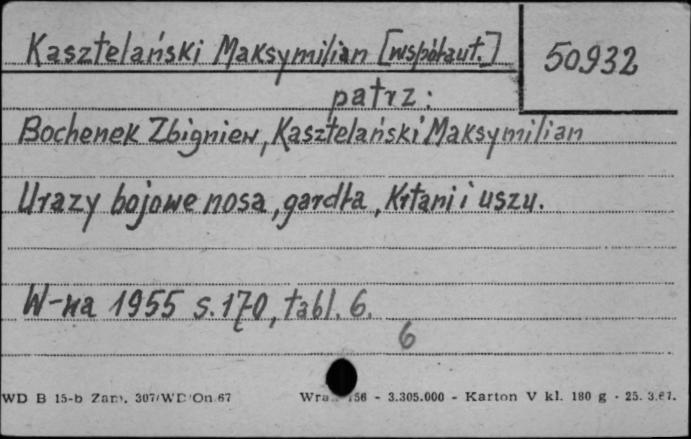 Kasztelański Maksymilian [współaut.]
50932
patrz:
Bochenek Zbigniew, Kasztelański Maksymilian
Urazy bojowe nosa, gardła, krtani i uszu.
W-wa 1955 s. 170, tabl. 6.
6
WD B 15-b Zam. 307/WD/On 67
56 - 3.305.000 - Karton V kl. 180 g - 25. 3.67.